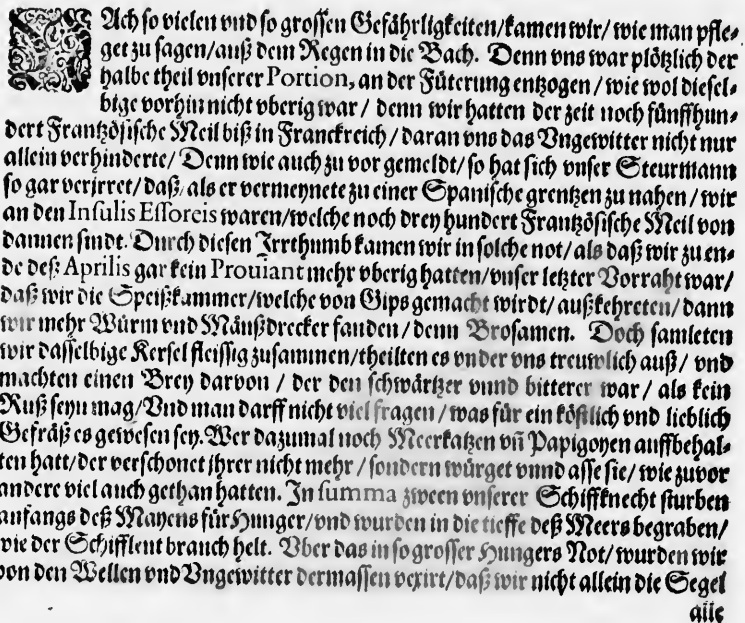 NAch so vielen vnd so grossen Gefährligkeiten/kamen wir/ wie man pfle⸗
get zu sagen/auß dem Regen in die Bach. Denn vns war plötzlich der
halbe theil vnserer Portion, an der Füterung entzogen / wie wol diesel⸗
bige vorhin nicht vberig war / denn wir hatten der zeit noch fünffhun⸗
dert Frantzösische Meil biß in Franckreich / daran vns das Vngewitter nicht nur
allein verhinderte/ Denn wie auch zu vor gemeldt/ so hat sich vnser Steurmann
so gar verirret/ daß/ als er vermeynete zu einer Spanische grentzen zu nahen / wir
an den Insulis Essoreis waren/welche noch drey hundert Frantzösische Meil von
dannen sindt. Durch diesen Irrthumb kamen wir in solche not/ als daß wir zu en⸗
de deß Aprilis gar kein Prouiant mehr vberig hatten/vnser letzter Vorraht war/
daß wir die Speißkammer/welche von Gips gemacht wirdt/ außkehreten / dann
wir mehr Würm vnd Mäußdrecker fanden / denn Brosamen. Doch samleten
wir dasselbige Kersel fleissig zusammen/theilten es vnder vns treuwlich auß/ vnd
machten einen Brey darvon / der den schwärtzer vnnd bitterer war / als kein
Ruß seyn mag/Vnd man darff nicht viel fragen / was für ein köstlich vnd lieblich
Gefräß es gewesen sey. Wer dazumal noch Meerkatzen vñ Papigoyen auffbehal⸗
ten hatt/der verschonet jhrer nicht mehr / sondern würget vnnd asse sie/ wie zuvor
andere viel auch gethan hatten. In summa zween vnserer Schiffknecht sturben
anfangs deß Mayens für Hunger/vnd wurden in die tieffe deß Meers begraben/
wie der Schifflent brauch helt. Vber das in so grosser Hungers Not/ wurden wir
von den Wellen vnd Vngewitter dermassen vexirt/ daß wir nicht allein die Segel
alle